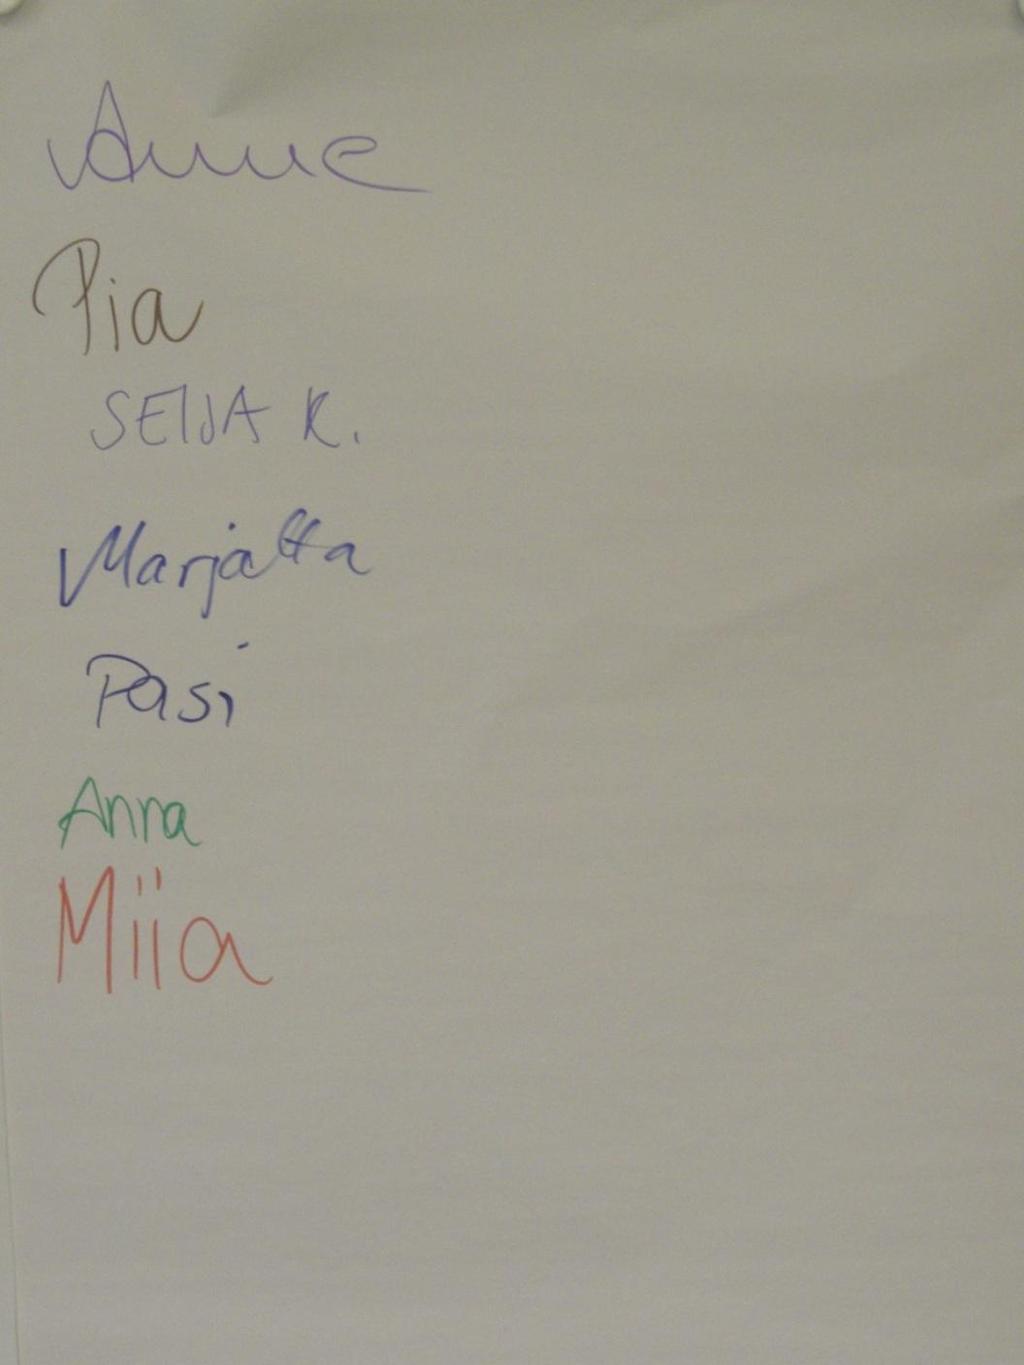 Anne
Pia
SEIJA K.
Marjatta
Pasi
Anna
Miia